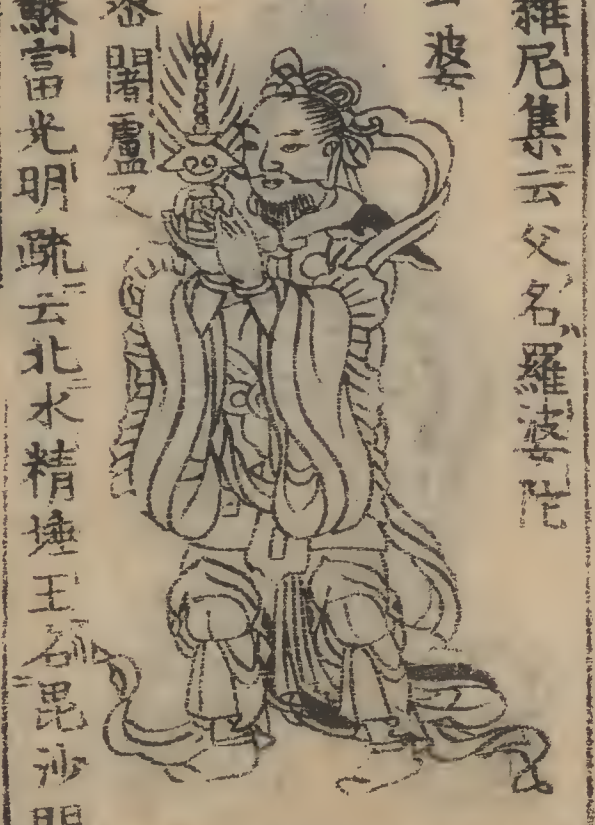 羅尼集云父名羅婆陀
婆
闍盧之
蘇富光明疏云北水精埵王名毘沙門